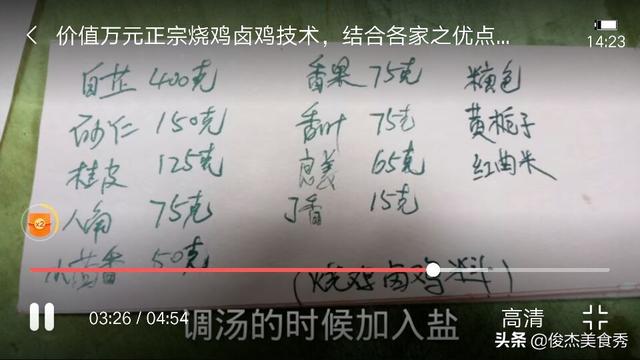 价值万元正宗烧鸡卤鸡技术，结合各家之优点...
14:23
白芷 400克 香果 75克 糖色
砂仁 150克 香叶 75克 黄栀子
桂皮 125克 良姜 65克 红曲米
八角 75克 丁香 15克
小茴香 50克
(烧鸡卤鸡料)
03:26 / 04:54
高清
调汤的时候加入盐
头条 @俊杰美食秀
x2